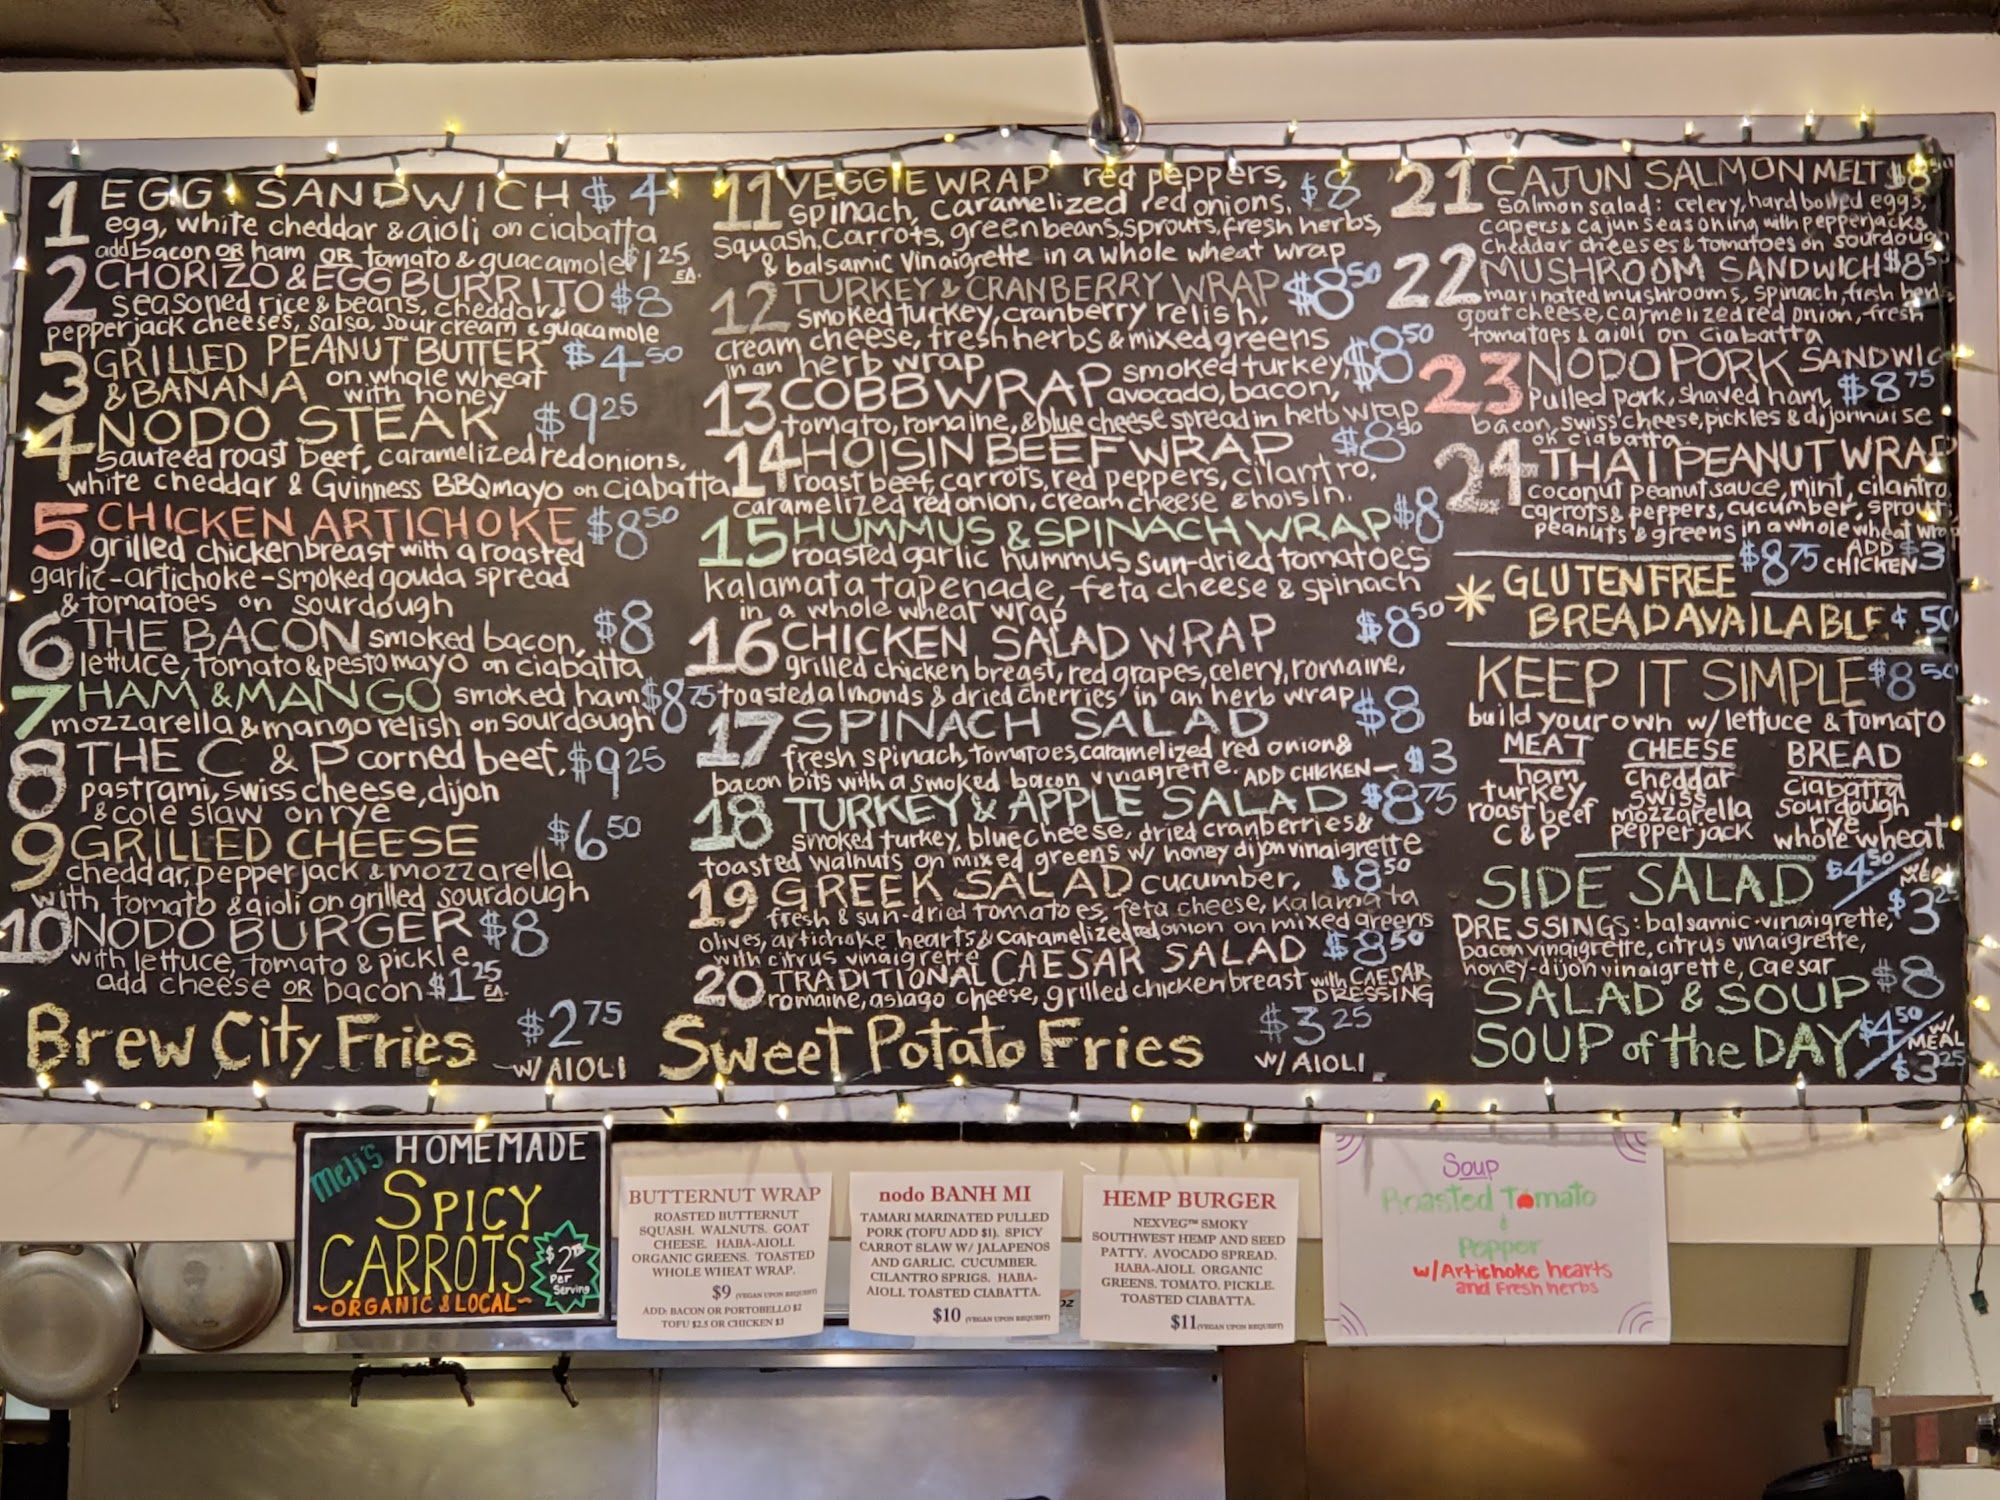 1 EGG SANDWICH $4
egg, white cheddar & aioli on ciabatta
add bacon OR ham OR tomato & guacamole $1.25 EA.
2 CHORIZO & EGG BURRITO $8
seasoned rice & beans, cheddar,
pepperjack cheeses, salsa, sour cream & guacamole
3 GRILLED PEANUT BUTTER $4.50
& BANANA on whole wheat
with honey
4 NODO STEAK $9.25
sauteed roast beef, caramelized red onions,
white cheddar & Guinness BBQ mayo on ciabatta
5 CHICKEN ARTICHOKE $8.50
grilled chicken breast with a roasted
garlic-artichoke-smoked gouda spread
& tomatoes on sourdough
6 THE BACON smoked bacon, $8
lettuce, tomato & pesto mayo on ciabatta
7 HAM & MANGO smoked ham $8.75
mozzarella & mango relish on sourdough
8 THE C & P corned beef, $9.25
pastrami, swiss cheese, dijon
& cole slaw on rye
9 GRILLED CHEESE $6.50
cheddar, pepperjack & mozzarella
with tomato & aioli on grilled sourdough
10 NODO BURGER $8
with lettuce, tomato & pickle
add cheese OR bacon $1.25 EA.
Brew City Fries $2.75
w/ AIOLI
11 VEGGIE WRAP red peppers, $8
spinach, caramelized red onions,
squash, carrots, green beans, sprouts, fresh herbs,
& balsamic vinaigrette in a whole wheat wrap
12 TURKEY & CRANBERRY WRAP $8.50
smoked turkey, cranberry relish,
cream cheese, fresh herbs & mixed greens
in an herb wrap
13 COBB WRAP smoked turkey, $8.50
avocado, bacon,
tomato, romaine, & blue cheese spread in herb wrap
14 HOISIN BEEF WRAP $8.50
roast beef, carrots, red peppers, cilantro,
caramelized red onion, cream cheese & hoisin.
15 HUMMUS & SPINACH WRAP $8
roasted garlic hummus, sun-dried tomatoes
kalamata tapenade, feta cheese & spinach
in a whole wheat wrap
16 CHICKEN SALAD WRAP $8.50
grilled chicken breast, red grapes, celery, romaine,
toasted almonds & dried cherries in an herb wrap
17 SPINACH SALAD $8
fresh spinach, tomatoes, caramelized red onion &
bacon bits with a smoked bacon vinaigrette. ADD CHICKEN — $3
18 TURKEY & APPLE SALAD $8.75
smoked turkey, blue cheese, dried cranberries &
toasted walnuts on mixed greens w/ honey dijon vinaigrette
19 GREEK SALAD cucumber, $8.50
fresh & sun-dried tomatoes, feta cheese, kalamata
olives, artichoke hearts & caramelized red onion on mixed greens
with citrus vinaigrette
20 TRADITIONAL CAESAR SALAD $8.50
romaine, asiago cheese, grilled chicken breast with CAESAR
DRESSING
Sweet Potato Fries $3.25
w/ AIOLI
21 CAJUN SALMON MELT $8.50
salmon salad: celery, hard boiled eggs,
capers & cajun seasoning with pepperjack &
cheddar cheeses & tomatoes on sourdough
22 MUSHROOM SANDWICH $8.50
marinated mushrooms, spinach, fresh herbs
goat cheese, carmelized red onion, fresh
tomatoes & aioli on ciabatta
23 NODO PORK SANDWIC
Pulled pork, shaved ham, $8.75
bacon, swiss cheese, pickles & dijonnaise
on ciabatta
24 THAI PEANUT WRAP
coconut peanut sauce, mint, cilantro
carrots & peppers, cucumber, sprout
peanuts & greens in a whole wheat wrap
$8.75 ADD CHICKEN $3
* GLUTEN FREE
BREAD AVAILABLE ¢50
KEEP IT SIMPLE $8.50
build your own w/ lettuce & tomato
MEAT CHEESE BREAD
ham cheddar ciabatta
turkey swiss sourdough
roast beef mozzarella rye
C & P pepperjack whole wheat
SIDE SALAD $4.50 / w/ MEAL $3.25
DRESSINGS: balsamic-vinaigrette,
bacon vinaigrette, citrus vinaigrette,
honey-dijon vinaigrette, caesar
SALAD & SOUP $8
SOUP of the DAY $4.50 / w/ MEAL $3.25
Meli's HOMEMADE
SPICY
CARROTS
$2 Per Serving
~ORGANIC & LOCAL~
BUTTERNUT WRAP
ROASTED BUTTERNUT
SQUASH. WALNUTS. GOAT
CHEESE. HABA-AIOLI
ORGANIC GREENS. TOASTED
WHOLE WHEAT WRAP.
$9 (VEGAN UPON REQUEST)
ADD: BACON OR PORTOBELLO $2
TOFU $2.5 OR CHICKEN $3
nodo BANH MI
TAMARI MARINATED PULLED
PORK (TOFU ADD $1). SPICY
CARROT SLAW W/ JALAPENOS
AND GARLIC. CUCUMBER.
CILANTRO SPRIGS. HABA-
AIOLI TOASTED CIABATTA.
$10 (VEGAN UPON REQUEST)
HEMP BURGER
NEXVEG™ SMOKY
SOUTHWEST HEMP AND SEED
PATTY. AVOCADO SPREAD.
HABA-AIOLI. ORGANIC
GREENS. TOMATO. PICKLE.
TOASTED CIABATTA.
$11 (VEGAN UPON REQUEST)
Soup
Roasted Tomato
&
Pepper
w/Artichoke hearts
and Fresh herbs